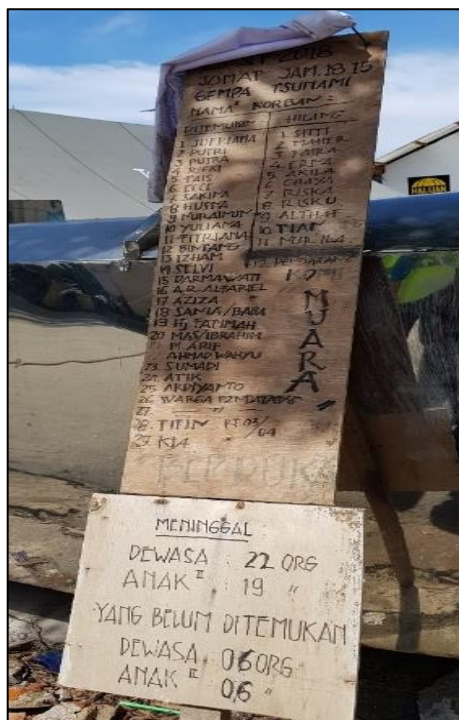 2018
JUMAT JAM.18.15
GEMPA TSUNAMI
NAMA" KORBAN :
DITEMUKAN
HILANG
1 JUPRIANA
2 PUTRI
3 PUTRA
4 RIFKI
5 FAIS
6 ECCE
7 SAKINA
8 HUSMA
9 MURAIMUN
10 YULIANA
11 FITRIANA
12 BINTANG
13 IZHAM
14 SELVI
15 DARMAWATI
16 A.R. ALFARIEL
17 AZIZA
18 SAMIA/BABA
19 Hj FATIMAH
20 MAS/IBRAHIM
M. ARIF
AHMAD WAHYU
23 SUMADI
24 ATIK
25 ARDIYANTO
26 WARGA
27
28. TITIN RT 03/04
29. KIA
1 SITTI
2 MAHER
3 NAIRA
4 ERMA
5 AKILA
6 CHAYA
7 RISKA
8 RISKU
9 ALTHAF
10 TIAR
11 MUR
MUARA
BERDUKA
MENINGGAL
DEWASA : 22 ORG
ANAK II 19 "
YANG BELUM DITEMUKAN
DEWASA 06 ORG
ANAK II 06 "